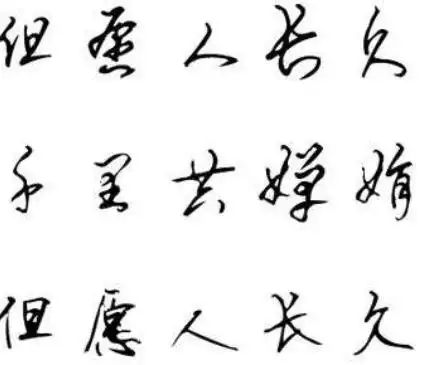 但愿人长久
千里共婵娟
但愿人长久